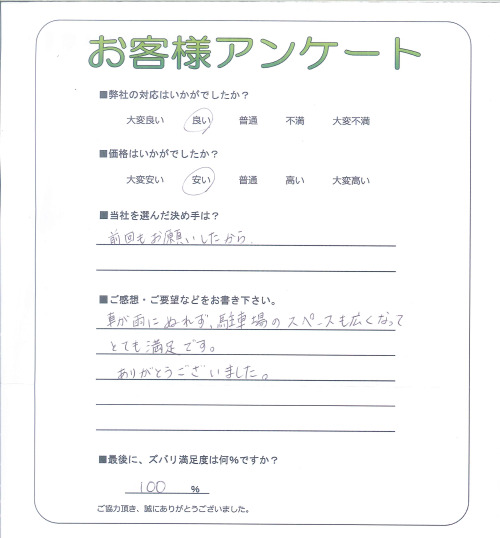 お客様アンケート
■弊社の対応はいかがでしたか？
大変良い 良い 普通 不満 大変不満
■価格はいかがでしたか？
大変安い 安い 普通 高い 大変高い
■当社を選んだ決め手は？
前回もお願いしたから
■ご感想・ご要望などをお書き下さい。
車が雨にぬれず、駐車場のスペースも広くなって
とても満足です。
ありがとうございました。
■最後に、ズバリ満足度は何%ですか？
100 %
ご協力頂き、誠にありがとうございました。